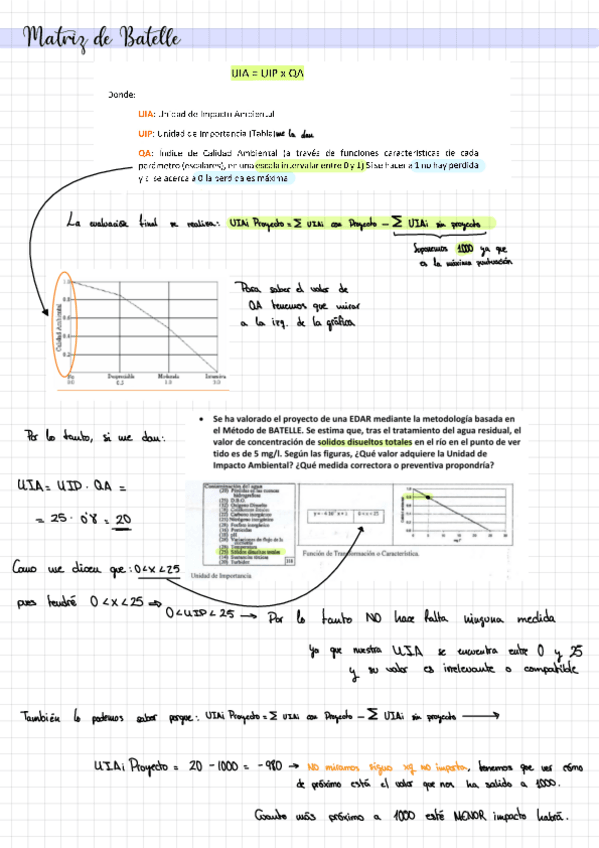 Matriz de Batelle
UIA = UIP x QA
Donde:
UIA: Unidad de Impacto Ambiental
UIP: Unidad de Importancia (Tabla) me la dan
QA: Indice de Calidad Ambiental (a través de funciones características de cada
parámetro (escalares), en una escala intervalar entre 0 y 1) Si se hacer a 1 no hay perdida
y si se acerca a 0 la perdida es máxima
La evaluación final se realiza: UIAi Proyecto = Σ UIAi con Proyecto - Σ UIAi sin proyecto
Suponemos 1000 ya que
es la máxima puntuación
Para saber el valor de
QA tenemos que mirar
a la izq. de la gráfica
Calidad Ambiental
1.0
0.8
0.6
0.4
0.2
Despreciable
Moderada
Por lo tanto, si me dan:
• Se ha valorado el proyecto de una EDAR mediante la metodología basada en
el Método de BATELLE. Se estima que, tras el tratamiento del agua residual, el
valor de concentración de solidos disueltos totales en el río en el punto de ver
tido es de 5 mg/l. Según las figuras, ¿Qué valor adquiere la Unidad de
Impacto Ambiental? ¿Qué medida correctora o preventiva propondría?
UIA = UID · QA =
= 25 · 0'8 = 20
Contaminación del agua
(20) Pérdidas en las cuencas
hidrográficas
(25) D.B.O.
(31) Oxígeno Disuelto
(18) Coliformes fecales
(22) Carbono inorgánico
(25) Nitrógeno inorgánico
(28) Fosfato inorgánico
(16) Pesticidas
(18) pH
(28) Variaciones de flujo de la
corriente
(28) Temperatura
(25) Sólidos disueltos totales
(14) Sustancias tóxicas
(20) Turbidez
0 < x < 25
Función de Transformación o Característica.
Unidad de Importancia
Como me dicen que: 0<x<25
pues tendré 0 < x < 25 ⇒
0 < UID < 25 → Por lo tanto NO hace falta ninguna medida
ya que nuestra UIA se encuentra entre 0 y 25
y su valor es irrelevante o compatible
También lo podemos saber porque: UIAi Proyecto = Σ UIAi con Proyecto - Σ UIAi sin proyecto →
UIAi Proyecto = 20 - 1000 = -980 → NO miramos signo xq no importa, tenemos que ver cómo
de próximo está el valor que nos ha salido a 1000.
Cuanto más próximo a 1000 esté MENOR impacto habrá.